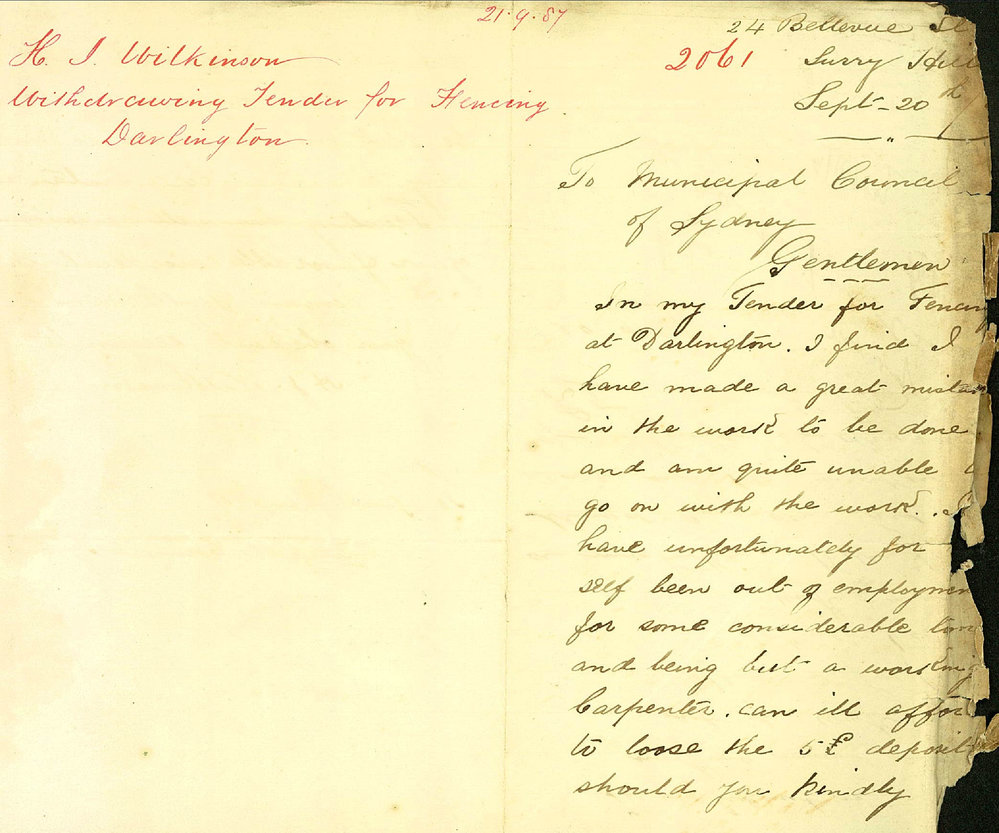 21.9.87
H. J. Wilkinson
Withdrawing Tender for Fencing
Darlington
2061
24 Bellevue St
Surry Hill
Sept - 20th
To Municipal Council
of Sydney
Gentlemen
In my Tender for Fencing
at Darlington. I find I
have made a great mista
in the work to be done
and am quite unable
go on with the work. I
have unfortunately for
self been out of employmen
for some considerable tim
and being but a working
Carpenter. can ill afford
to loose the 5£ deposit
should you kindly